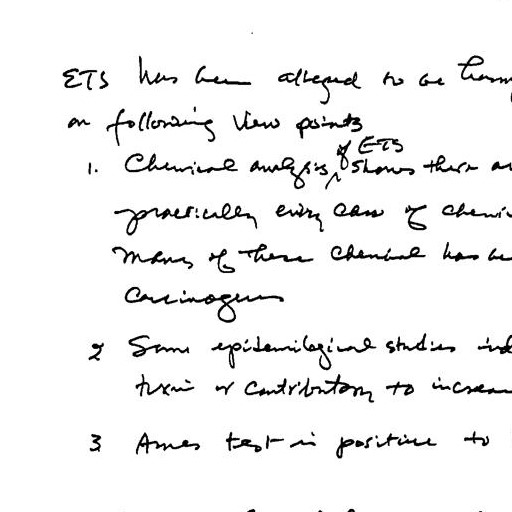 ETS has been alleged to be harm
on following view points
1. Chemical analysis of ETS shows there ar
practically every case of chemi
Many of these chemical has be
Carcinogens
2 Some epidemilogical studies ind
toxic or contributory to increas
3 Ames test is positive to